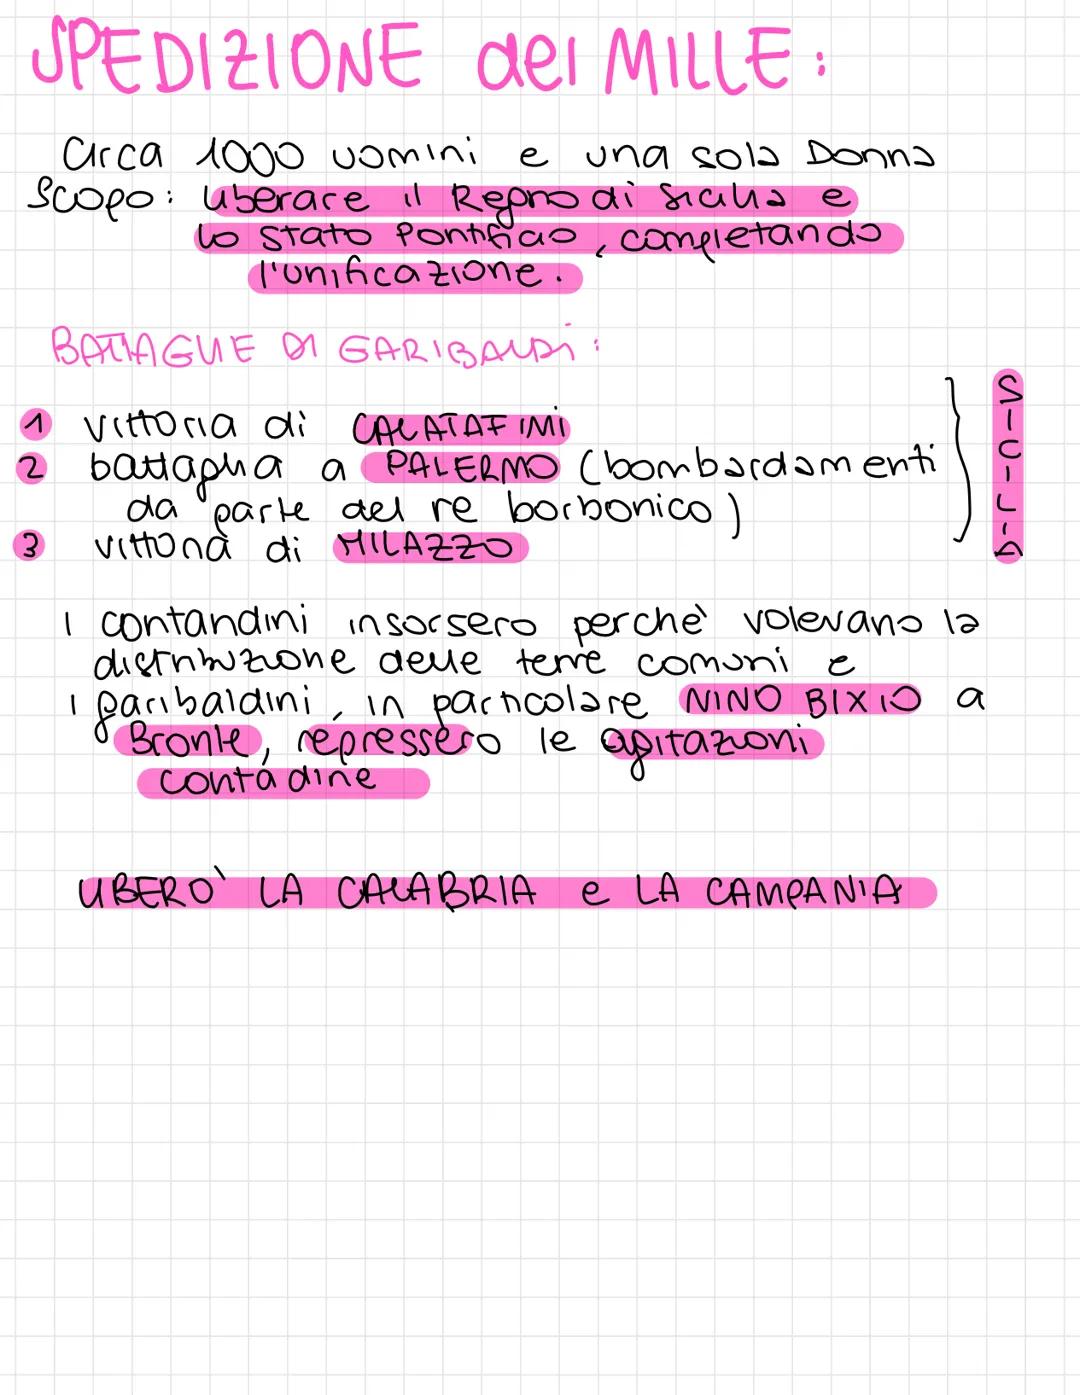 SPEDIZIONE dei MILLE:
Circa 1000 uomini e una sola Donna
Scopo: liberare il Regno di Sicilia e
lo stato Pontificio, completando
l'unificazione.
BATTAGLIE DI GARIBALDI:
1 vittoria di CALATAFIMI
2 battaglia a PALERMO (bombardamenti
da parte del re borbonico)
3 vittoria di MILAZZO
SICILIA
I contandini insorsero perchè volevano la
distribuzione delle terre comuni e
i garibaldini, in particolare NINO BIXIO a
Bronte, repressero le agitazioni
contadine
LIBERO' LA CALABRIA e LA CAMPANIA